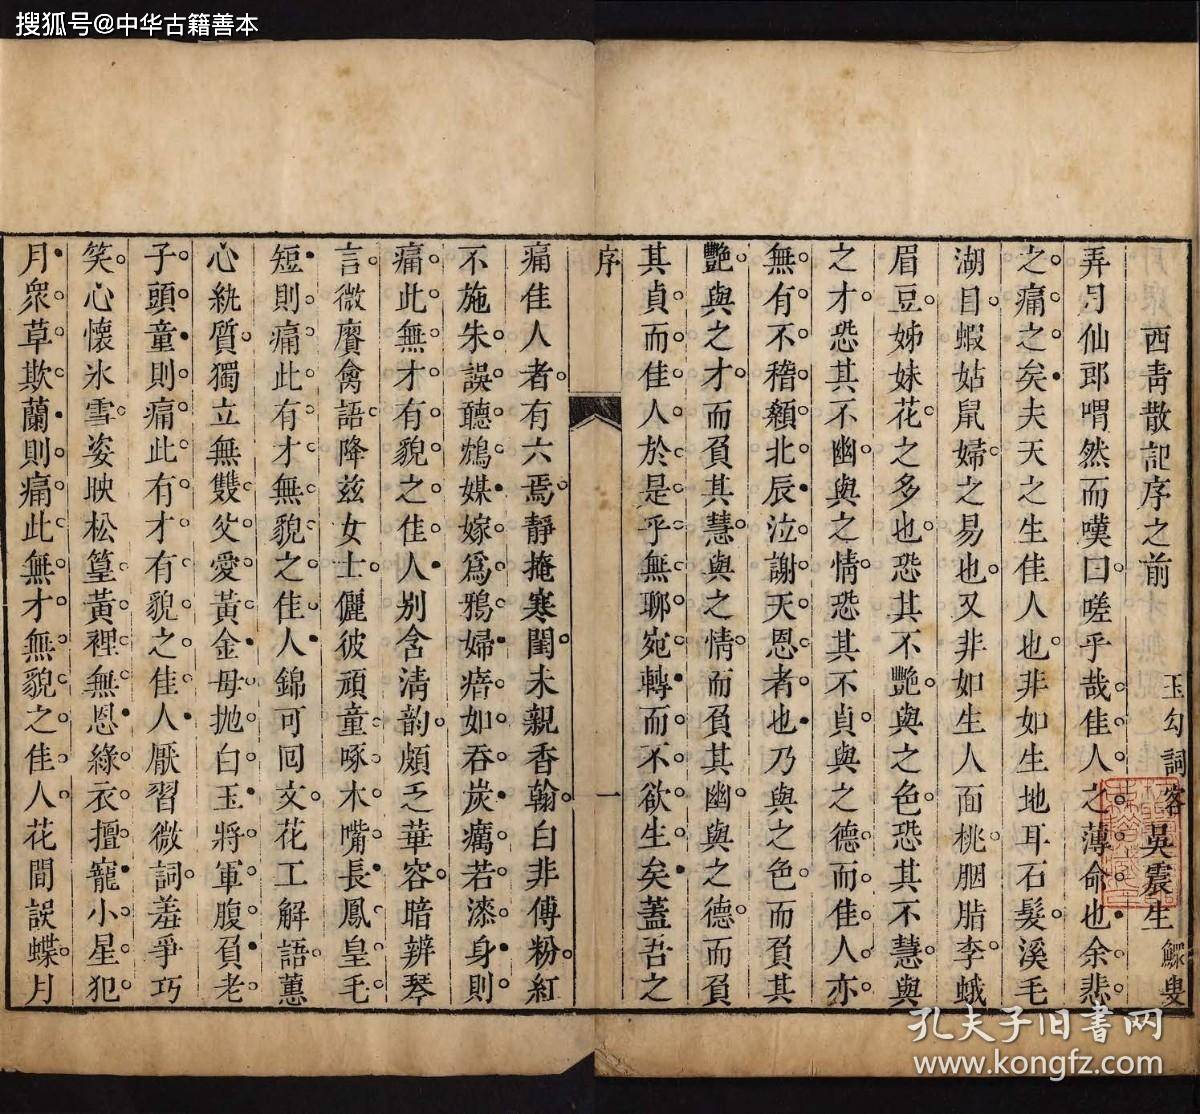 搜狐号@中华古籍善本
西靑散記序之前
玉勾詞客吳震生鰥叟
弄月仙郎喟然而嘆曰嗟乎哉佳人之薄命也余悲
之痛之矣夫天之生佳人也非如生地耳石髮溪毛
湖目蝦姑鼠婦之易也又非如生人面桃胭脂李蛾
眉豆姊妹花之多也恐其不艷與之色恐其不慧與
之才恐其不幽與之情恐其不貞與之德而佳人亦
無有不稽顙北辰泣謝天恩者也乃與之色而負其
艷與之才而負其慧與之情而負其幽與之德而負
其貞而佳人於是乎無聊宛轉而不欲生矣蓋吾之
序
一
痛佳人者有六焉靜掩寒閨未親香翰白非傅粉紅
不施朱誤聽鴆媒嫁爲鴉婦瘖如吞炭癘若漆身則
痛此無才有貌之佳人别含清韵頗乏華容暗辨琴
言微賡禽語降兹女士儷彼頑童啄木嘴長鳳皇毛
短則痛此有才無貌之佳人錦可回文花工解語蕙
心紈質獨立無雙父愛黃金母抛白玉將軍腹負老
子頭童則痛此有才有貌之佳人厭習微詞羞爭巧
笑心懷氷雪姿映松篁黃裡無恩綠衣擅寵小星犯
月衆草欺蘭則痛此無才無貌之佳人花間誤蝶月
孔夫子旧书网
www.kongfz.com